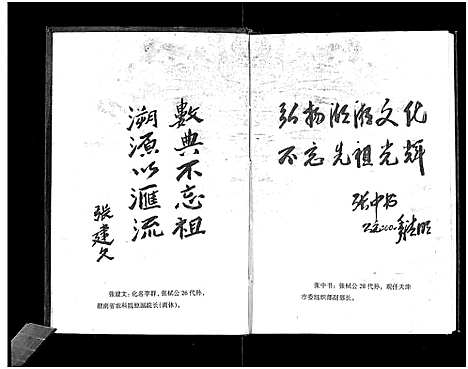 數典不忘祖
溯源以滙流
张建文
张建文：化名李群，张栻公26代孙，
湖南省农科院原副院长(离休)。
弘扬湖湘文化
不忘先祖光辉
张中书
张中书：张栻公28代孙，现任天津
市委组织部副部长。